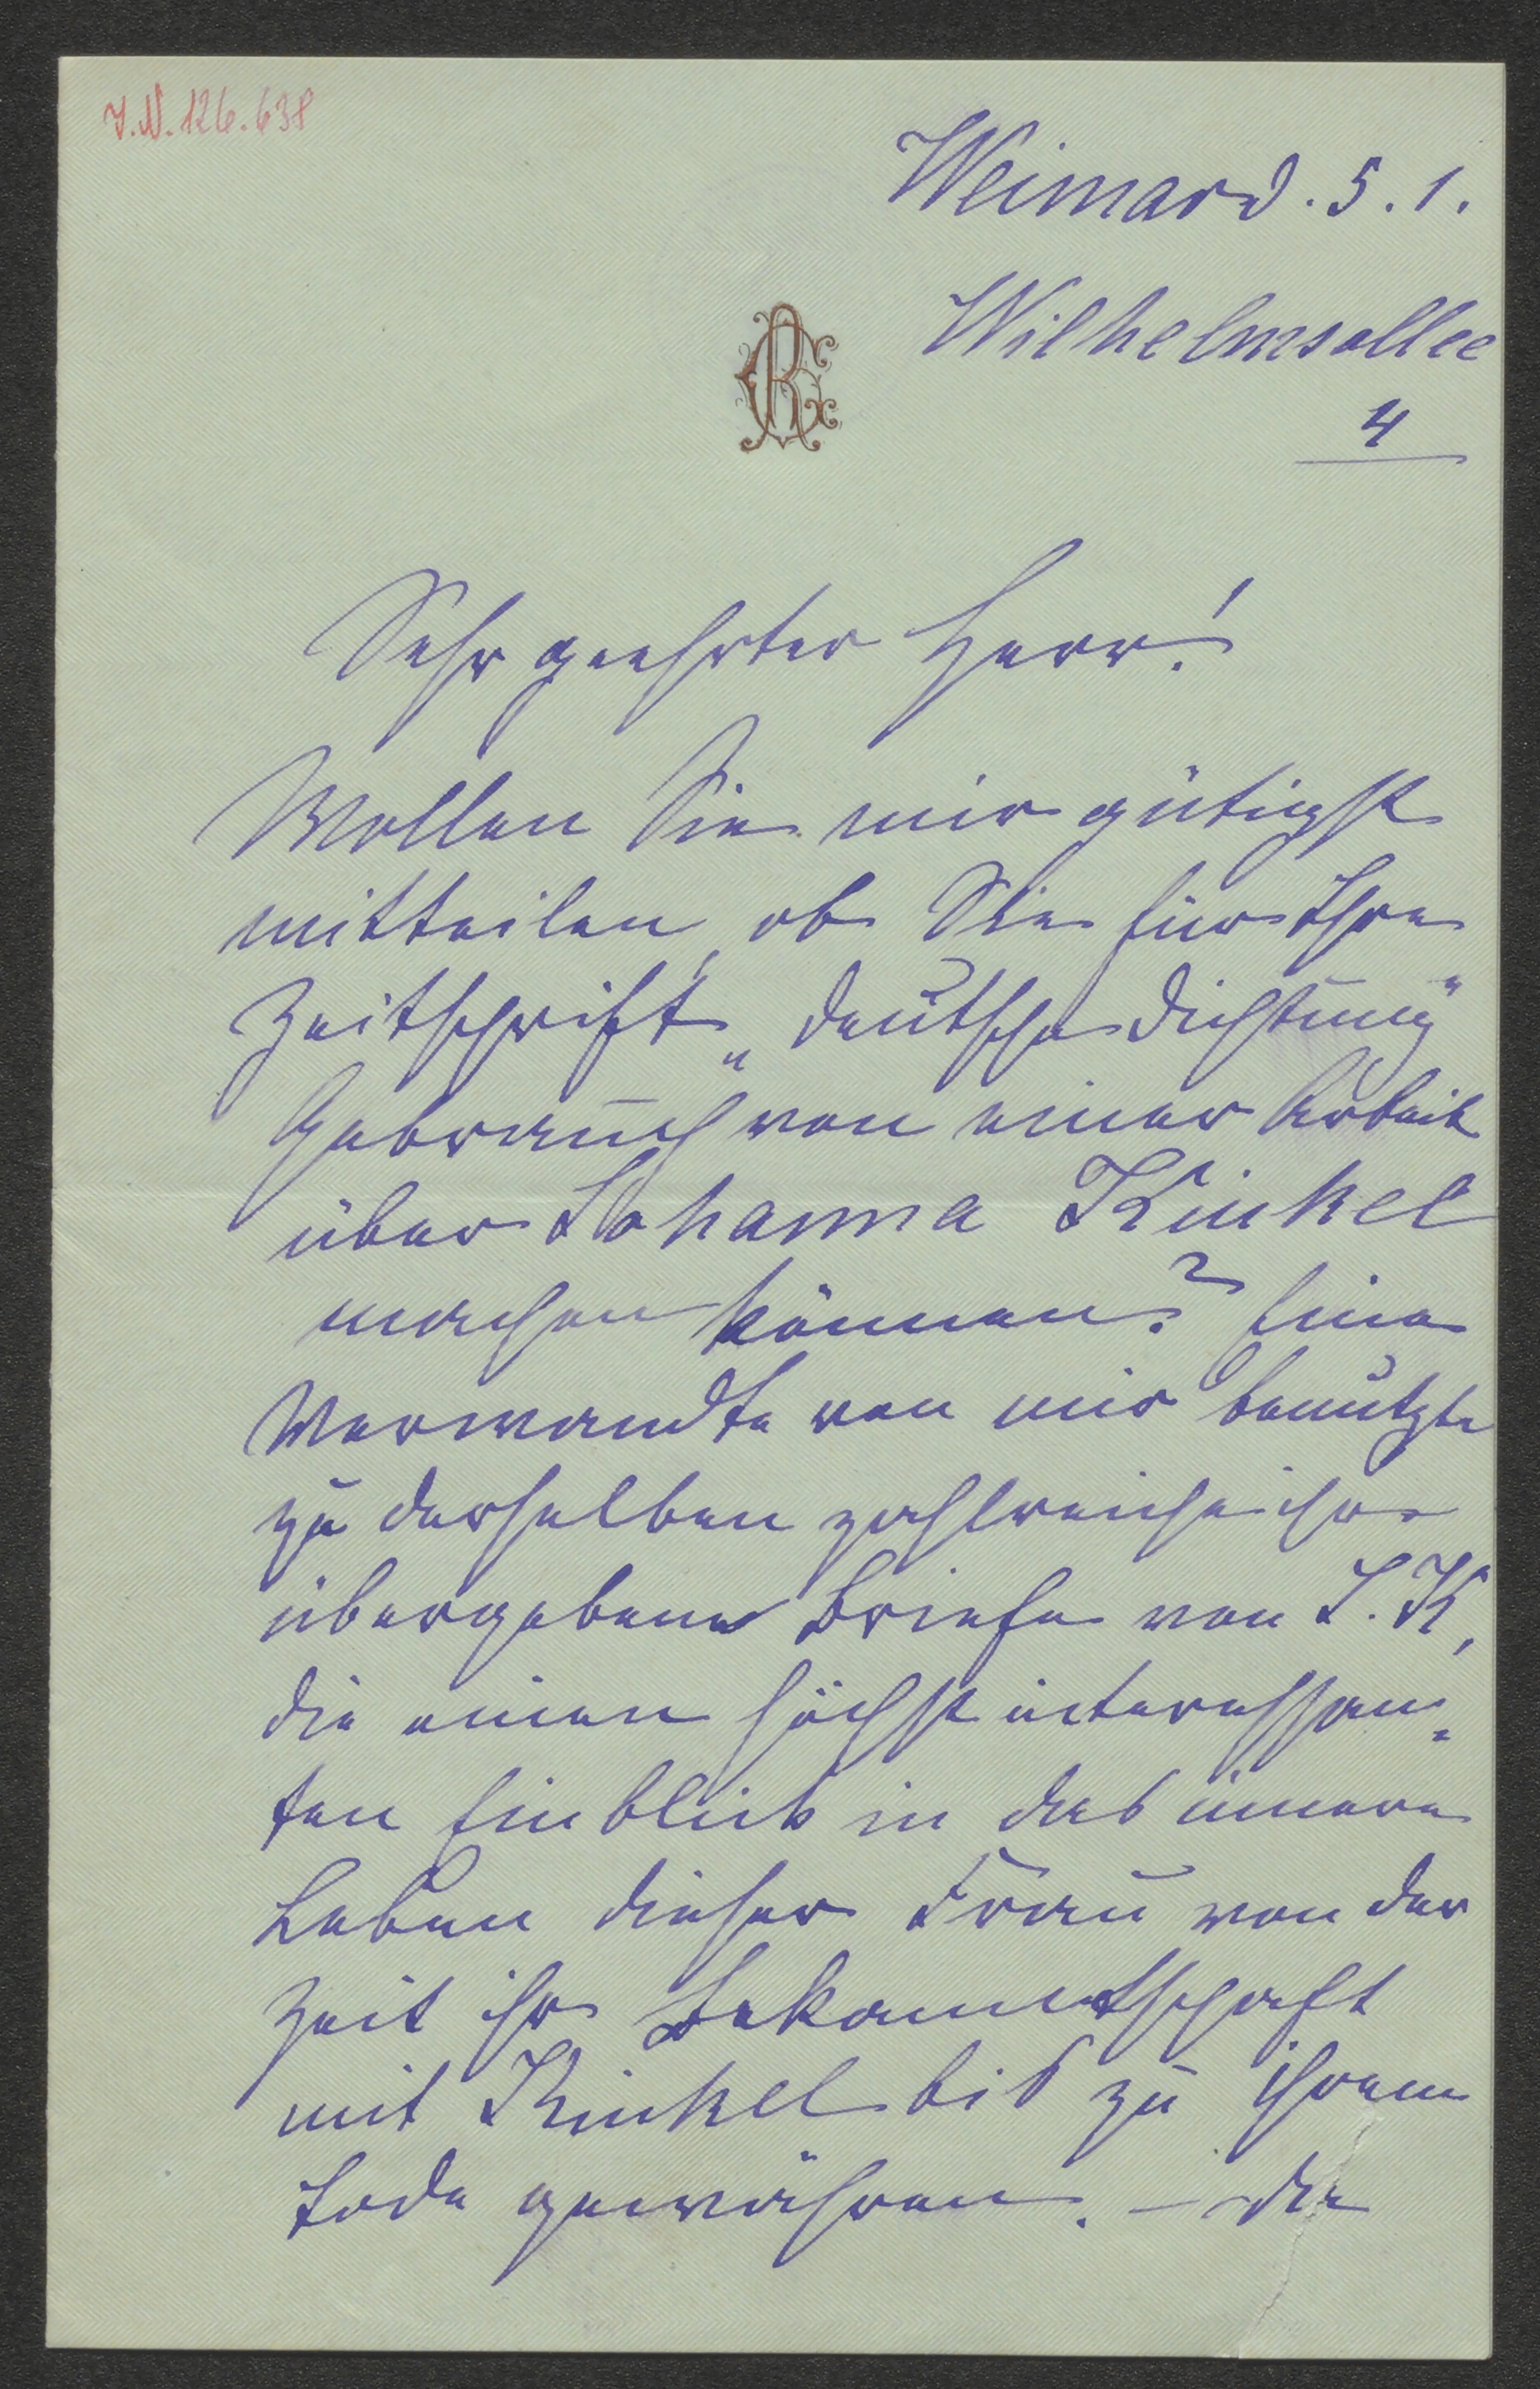 J.N. 126.638
Weimar d. 5. 1.
Wilhelmsallee
4
Sehr geehrter Herr!
Wollen Sie mir gütigst
mitteilen, ob Sie für Ihre
Zeitschrift „Deutsche Dichtung"
Gebrauch von einer Arbeit
über Johanna Kinkel
machen können? Eine
Verwandte von mir benützte
zu derselben zahlreiche ihr
übergebene Briefe von J. K,
die einen höchst interessan=
ten Einblick in das innere
Leben dieser Frau von der
Zeit ihr Bekanntschaft
mit Kinkel bis zu ihrem
Tode gewähren. – Die